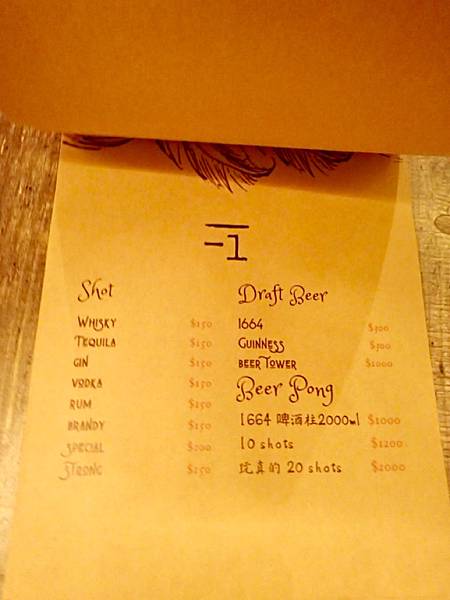 -1
Shot
Whisky $150
Tequila $150
Gin $150
Vodka $150
Rum $150
Brandy $150
Special $200
Strong $250
Draft Beer
1664 $300
Guinness $300
Beer Tower $1000
Beer Pong
1664 啤酒柱2000ml $1000
10 shots $1200
玩真的 20 shots $2000